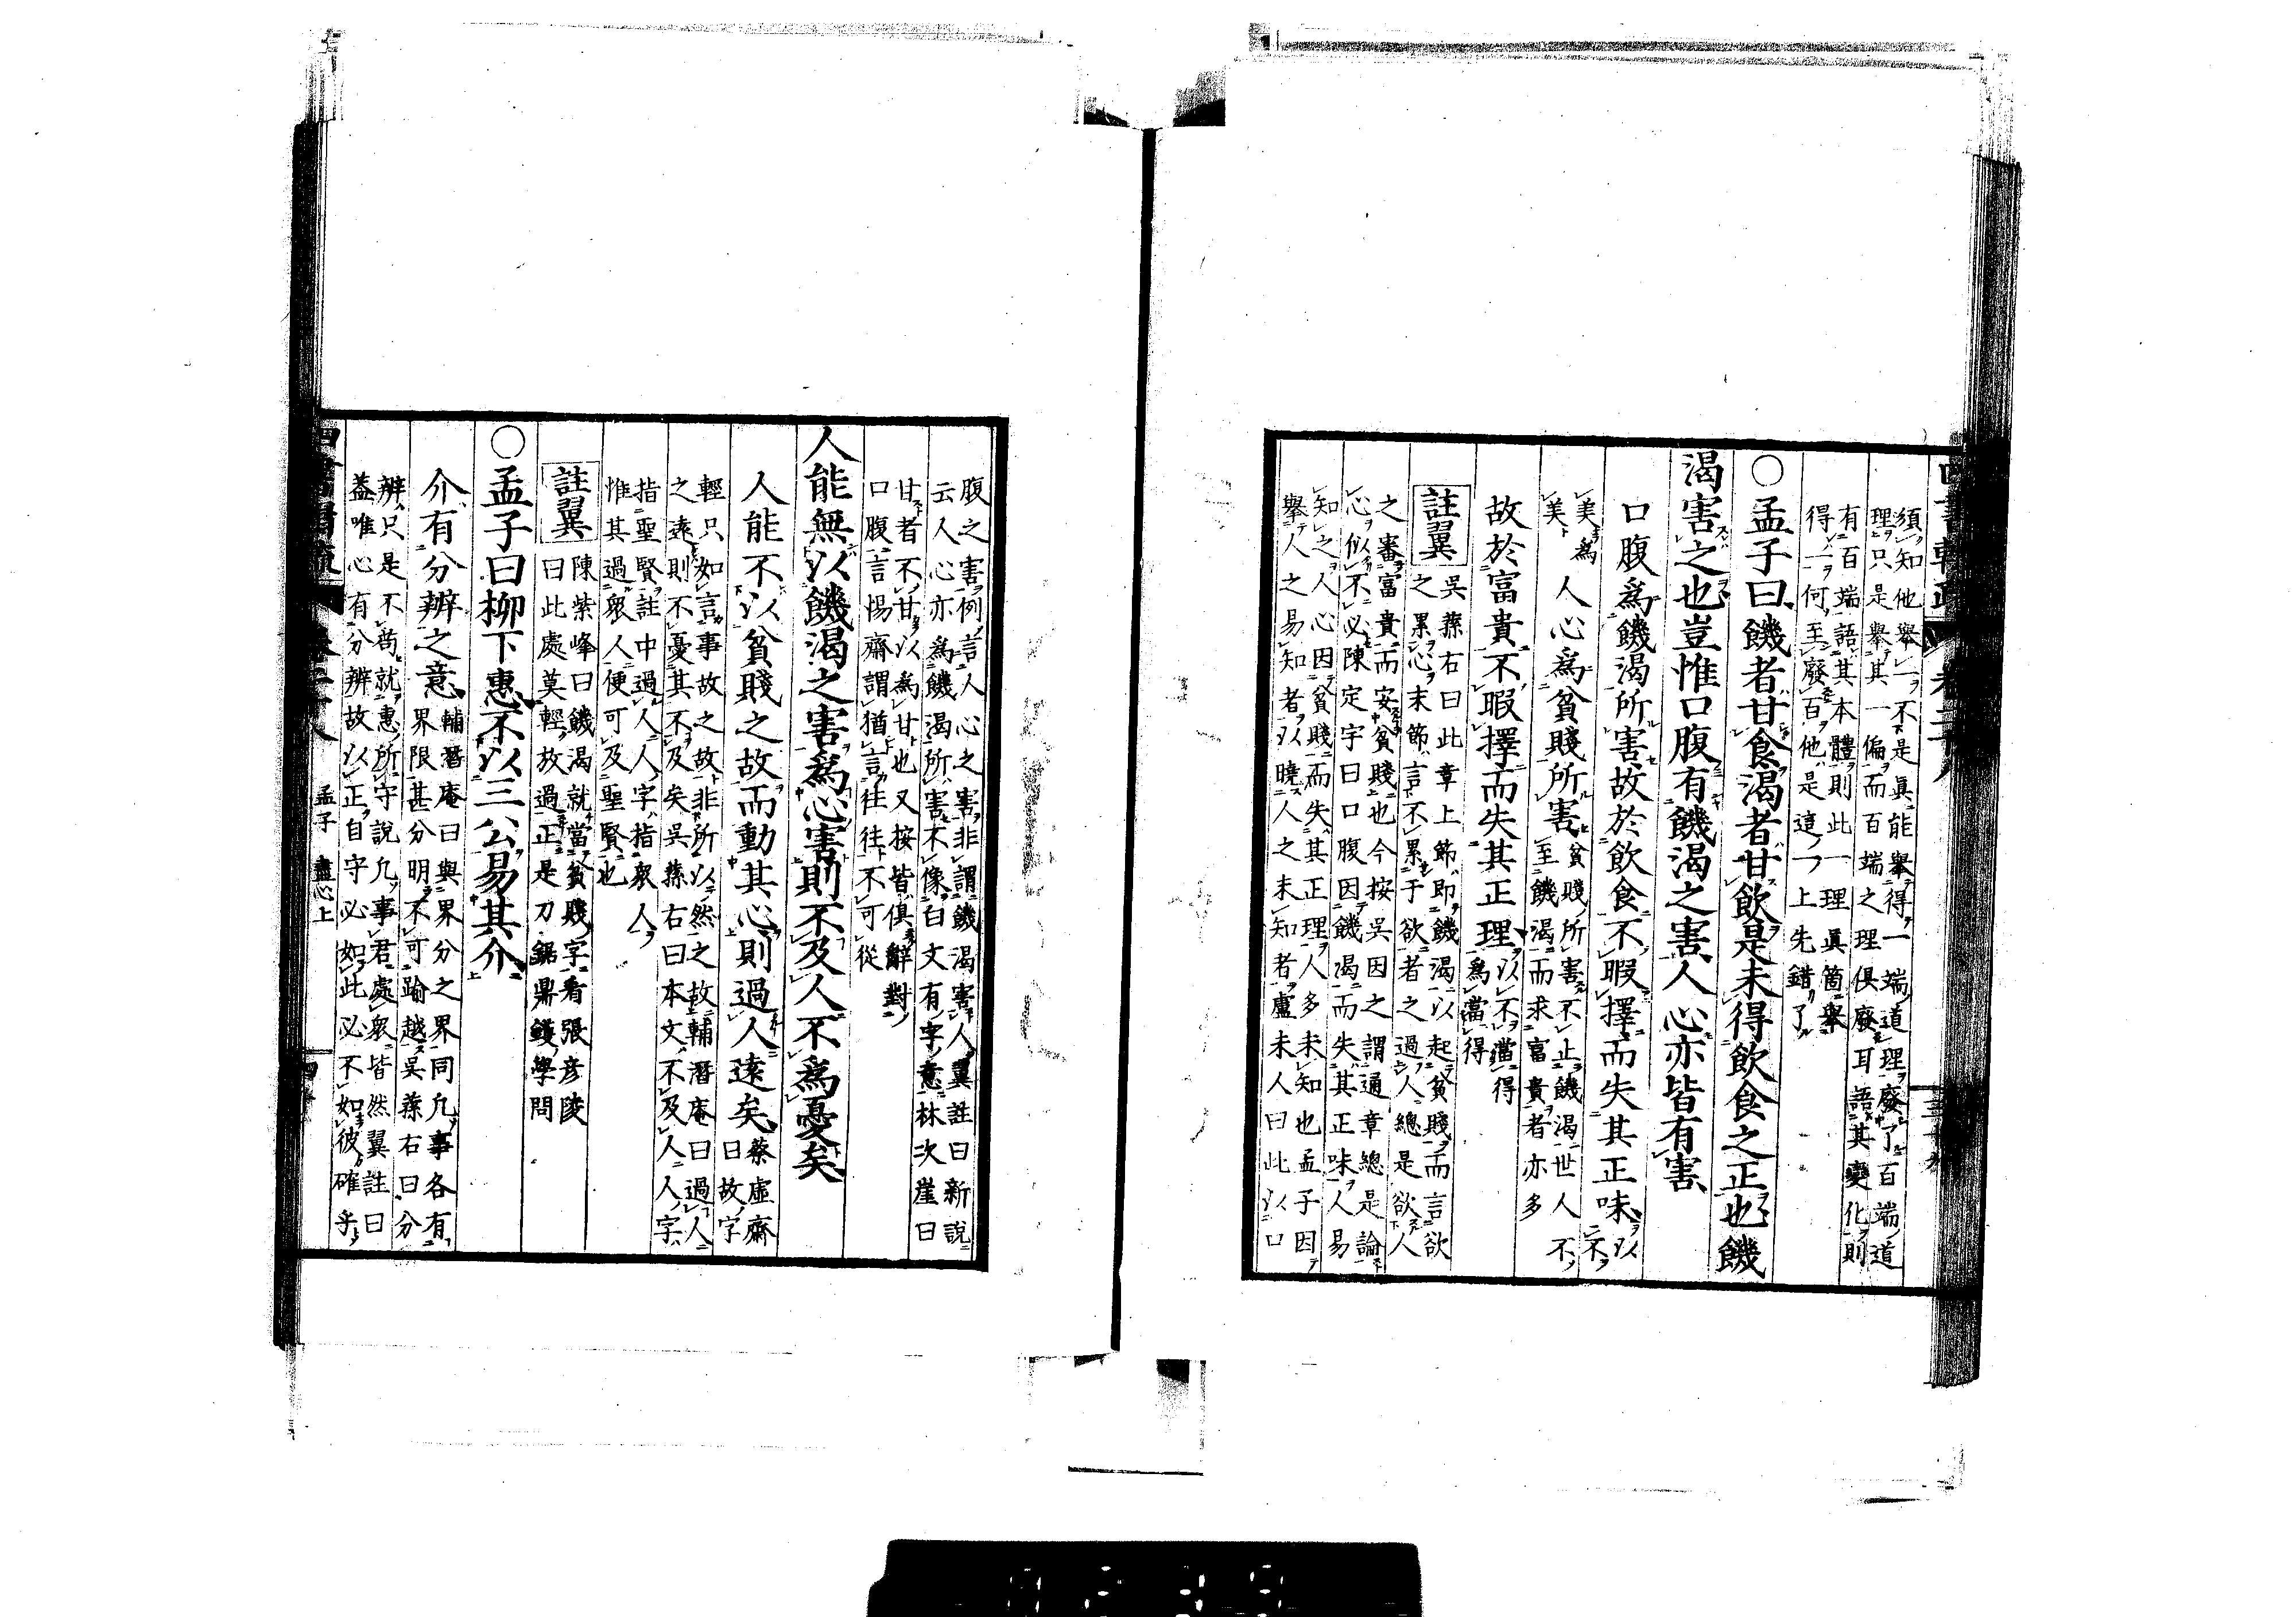 須知他舉一不是眞能舉得一端道理廢了百端道
理只是舉其一偏而百端之理俱廢耳語其變化則
有百端語其本體則此一理眞箇舉
得一何至廢百他是這一上先錯了
○孟子曰饑者甘食渴者甘飲是未得飲食之正也饑
渴害之也豈惟口腹有饑渴之害人心亦皆有害
口腹爲饑渴所害故於飲食不暇擇而失其正味
以不
爲美
美
人心爲貧賤所害
貧賤所害不止饑渴世人不
至饑渴而求富貴者亦多
故於富貴不暇擇而失其正理
以不當得
爲當得
註翼
吳蓀右曰此章上節卽饑渴以起貧賤而言欲
之累心末節言不累于欲者之過人總是欲人
之審富貴而安貧賤也今按吳因之謂通章總是論
心似不必陳定宇曰口腹因饑渴而失其正味人易
知之人心因貧賤而失其正理人多未知也孟子因
舉人之易知者以曉人之未知者盧未人曰此以口
腹之害例言人心之害非謂饑渴害人翼註曰新說
云人心亦爲饑渴所害不像白文有字意林次崖曰
甘者不甘以爲甘也又按皆俱辭對
口腹言惕齋謂猶言往往不可從
人能無以饑渴之害爲心害則不及人不爲憂矣
人能不以貧賤之故而動其心則過人遠矣
蔡虛齋
曰故字
輕只如言事故之故非所以然之故輔潛庵曰過人
之遠則不憂其不及矣吳蓀右曰本文不及人人字
指聖賢註中過人人字指衆人
惟其過衆人便可及聖賢也
註翼
陳紫峰曰饑渴就當貧賤字看張彥陵
曰此處莫輕放過正是刀鋸鼎鑊學問
○孟子曰柳下惠不以三公易其介
介有分辨之意
輔潛庵曰與界分之界同凡事各有
界限甚分明不可踰越吳蓀右曰分
辨只是不苟就惠所守說凡事君處衆皆然翼註曰
益唯心有分辨故以正自守必如此必不如彼確乎
孟子 盡心上